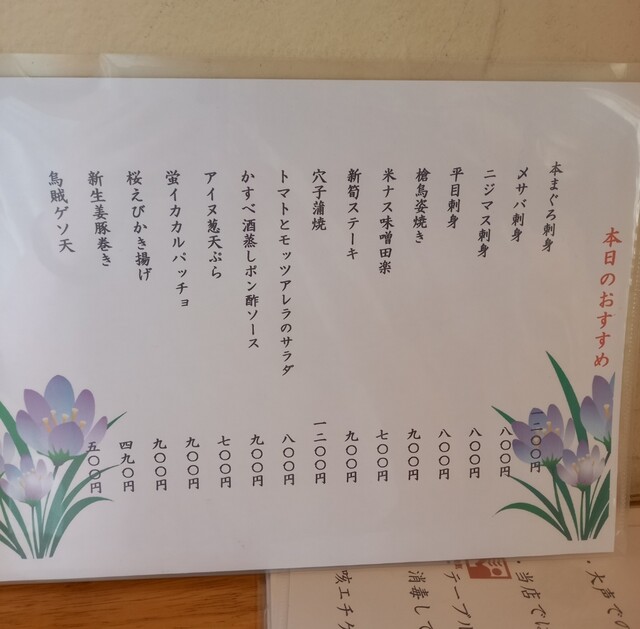 本日のおすすめ
本まぐろ刺身 一二〇〇円
メサバ刺身 八〇〇円
ニジマス刺身 八〇〇円
平目刺身 八〇〇円
槍烏姿焼き 九〇〇円
米ナス味噌田楽 七〇〇円
新筍ステーキ 九〇〇円
穴子蒲焼 一二〇〇円
トマトとモッツアレラのサラダ 八〇〇円
かすべ酒蒸しポン酢ソース 九〇〇円
アイヌ葱天ぷら 七〇〇円
蛍イカカルパッチョ 九〇〇円
桜えびかき揚げ 九〇〇円
新生姜豚巻き 四九〇円
烏賊ゲソ天 五〇〇円
・大声での
・当店では
テーブル
消毒して
咳エチケ